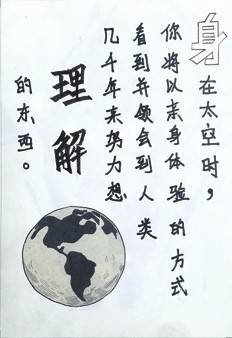 身在太空时，
你将以亲身体验的方式
看到并领会到人类
几千年来努力想
理解
的东西。